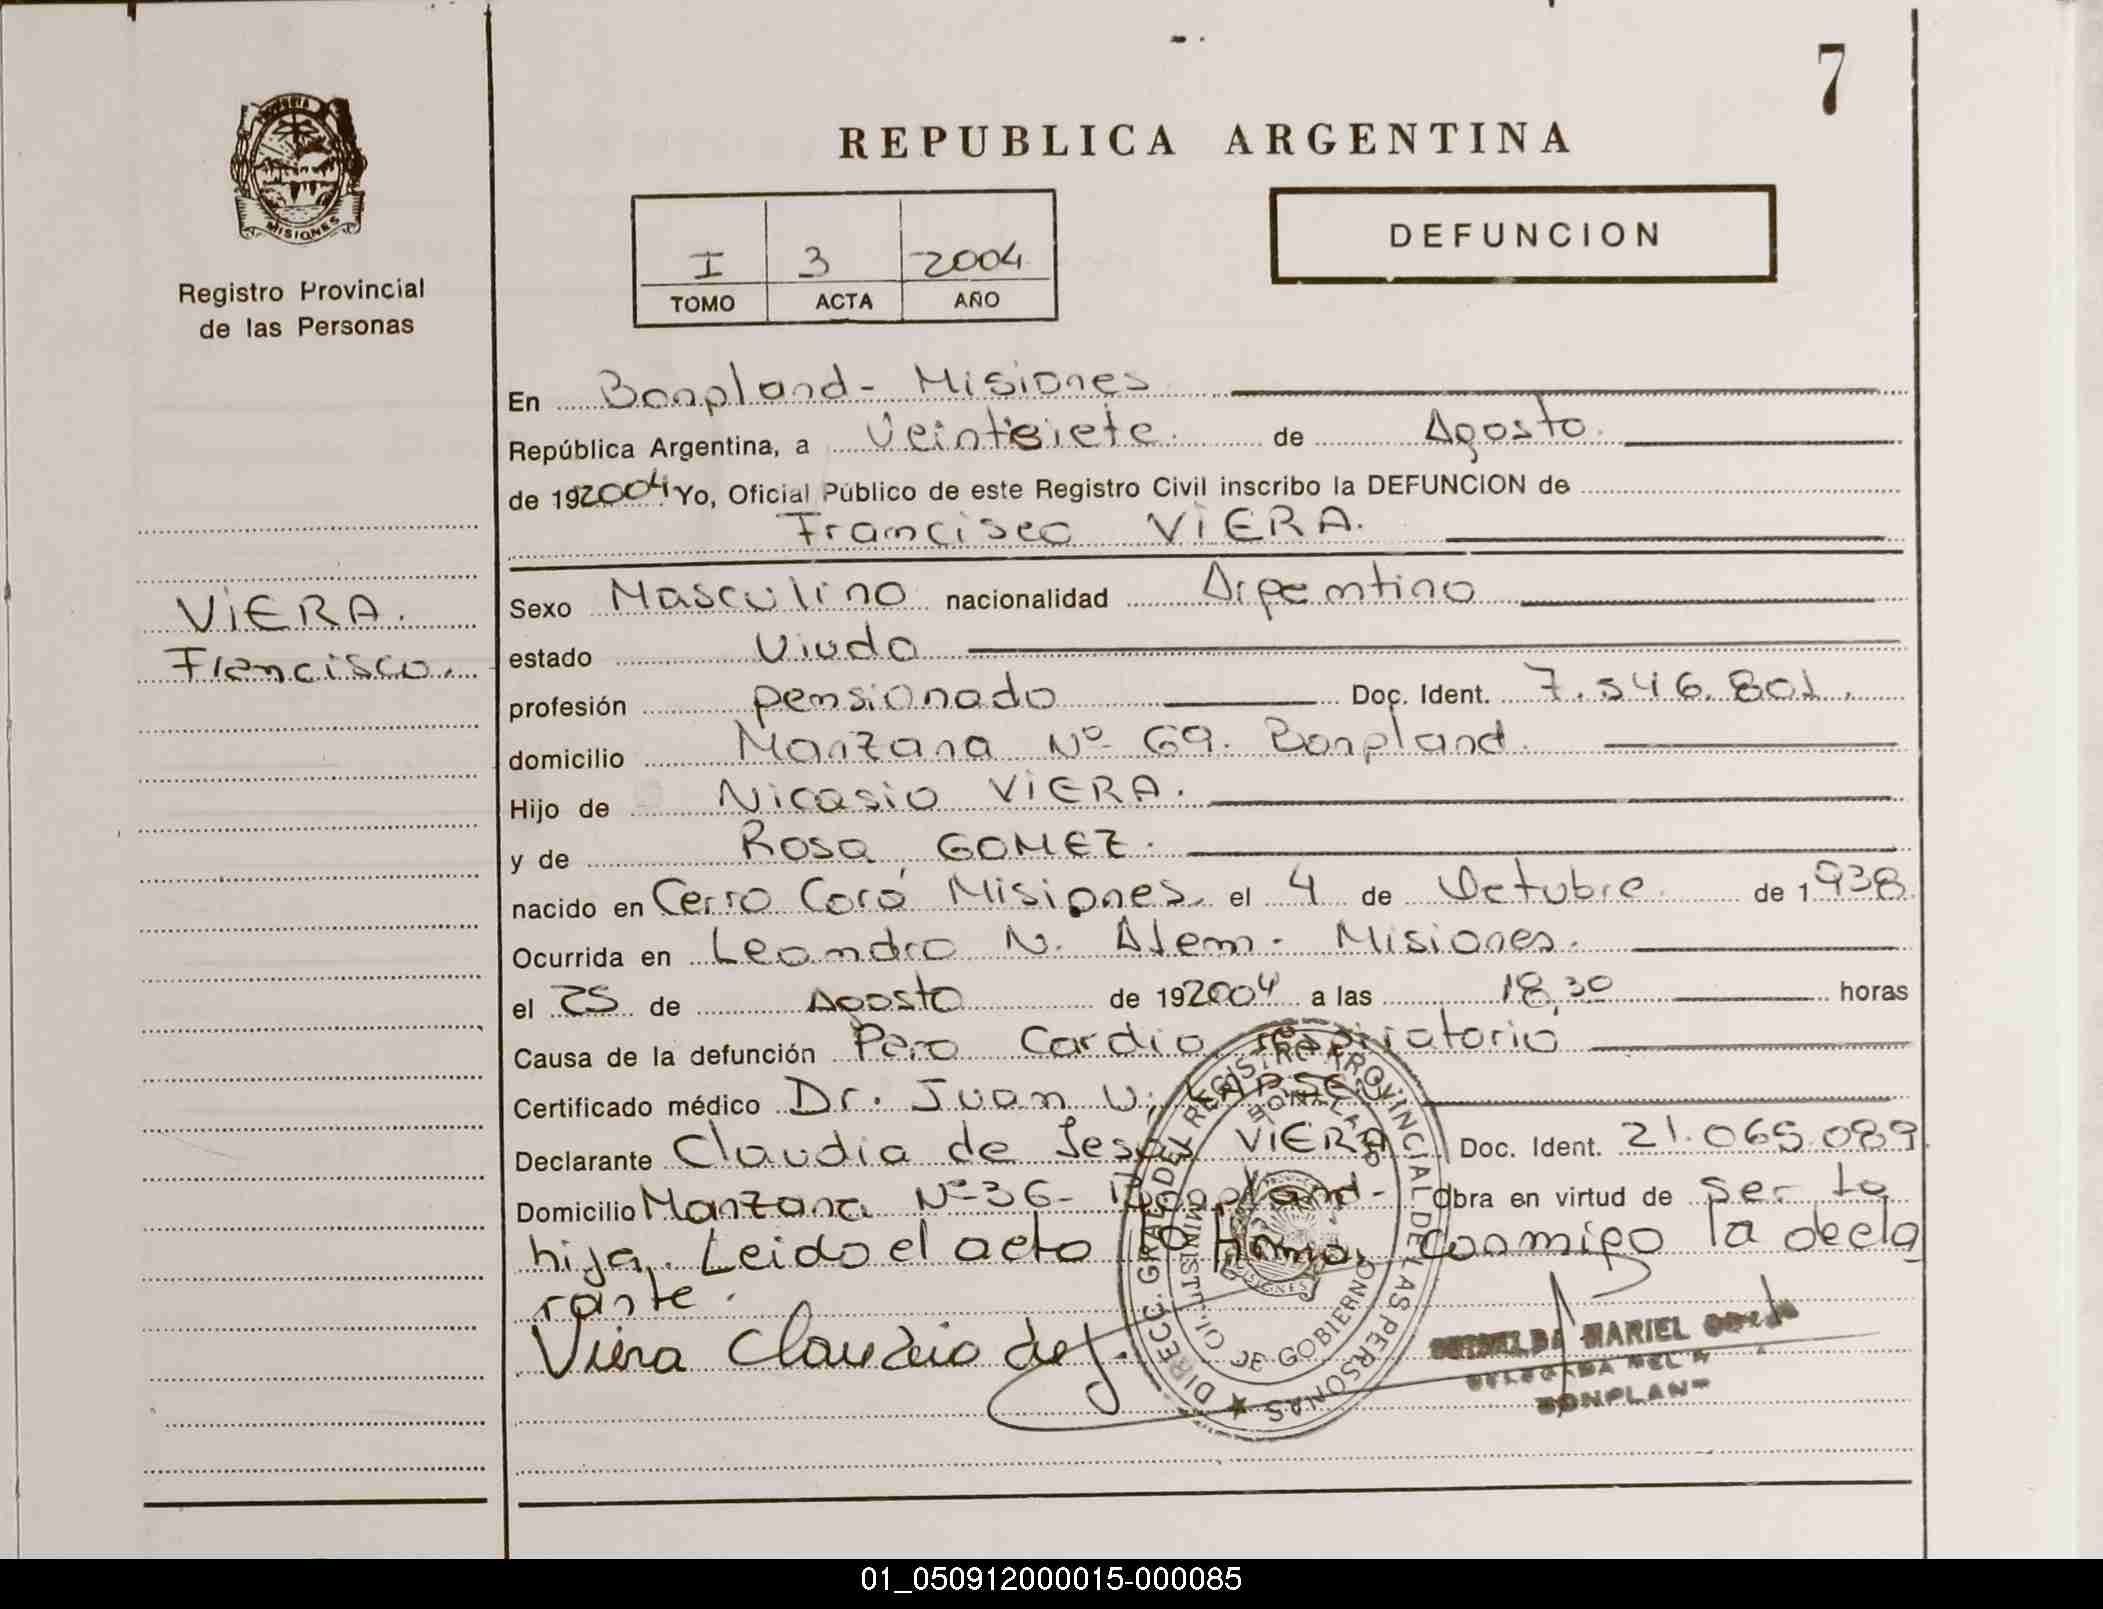 7
REPUBLICA ARGENTINA
MISIONES
Registro Provincial
de las Personas
I 3 2004
TOMO ACTA AÑO
DEFUNCION
En Bonpland - Misiones
República Argentina, a Veintisiete de Agosto.
de 192004 Yo, Oficial Público de este Registro Civil inscribo la DEFUNCION de
Francisco VIERA.
VIERA.
Francisco.
Sexo Masculino nacionalidad Argentino
estado Viudo
profesión pensionado Doc. Ident. 7.546.801.
domicilio Manzana Nº 69. Bonpland.
Hijo de Nicasio VIERA.
y de Rosa GOMEZ.
nacido en Cerro Corá Misiones. el 4 de Octubre de 1938.
Ocurrida en Leandro N. Alem. Misiones.
el 25 de Agosto de 192004 a las 18,30 horas
Causa de la defunción Paro Cardio respiratorio
Certificado médico Dr. Juan U.
Declarante Claudia de Jesús VIERA Doc. Ident. 21.065.089
Domicilio Manzana Nº 36 - Bonpland - Obra en virtud de ser la
hija. Leido el acto lo firma, conmigo la decla
rante.
Viera Claudia de J.
DIRECC. GRAL. DEL REGISTRO PROVINCIAL DE LAS PERSONAS
MINISTERIO DE GOBIERNO
BONPLAND
MISIONES
MARIEL
DELEGADA DEL
BONPLAND
01_050912000015-000085